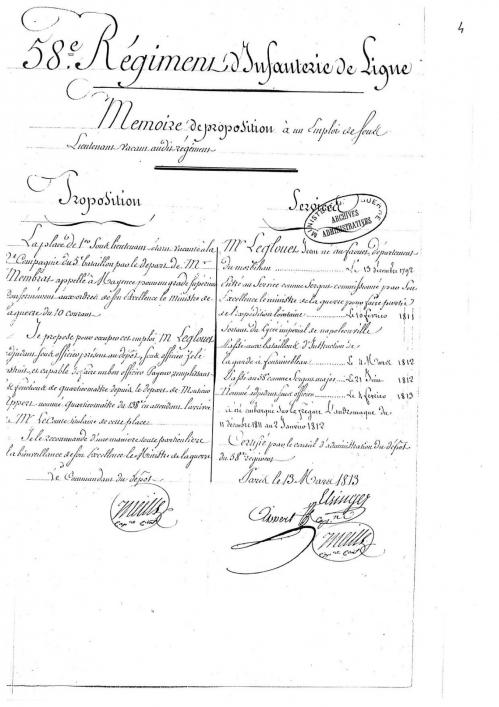 4
58e. Régiment d'Infanterie de Ligne
Memoire de proposition à un Emploi de Sous
Lieutenant vacant audit régiment
Proposition
La place de 1er Sous lieutenant étant vacante à la
2e Compagnie du 5e bataillon par le départ de Mr
Mombrat appellé à Mayence pour un grade supérieur
conformément aux ordres de son Excellence le ministre de
la guerre du 10 courant.
Je propose pour occuper cet emploi, M. Leglouet
adjudant sous officier présent au dépôt, sous officier zélé
instruit et capable de faire un bon officier Payeur remplissant
les fonctions de quartier maitre depuis le départ de Monsieur
nommé quartier maitre du 138e en attendant l'arrivée
de Mr Lecomte titulaire de cette place.
Je le recommande d'une manière toute particulière
à la bienveillance de son Excellence le Ministre de la guerre
Le Commandant du dépôt
Services
MINISTÈRE DE LA GUERRE
ARCHIVES ADMINISTRATIVES
Mr Leglouet, Jean né au faouet, département
du morbihan Le 13 décembre 1792
Entré au Service comme Sergent commissionné par Son
Excellence le ministre de la guerre pour faire partie
de l'expédition lointaine Le 10 février 1811
Sortant du Lycée impérial de napoléonville
Passé aux bataillons d'Instruction de
la garde à fontainebleau Le 4 Mars 1812
Passé au 58e comme Sergent major Le 21 Juin 1812
Nommé adjudant sous officier Le 8 février 1813
a été embarqué sur la frégate L'andromaque du
11 décembre 1811 au 2 Janvier 1812
Certifié par le conseil d'administration du dépôt
du 58e régiment
Paris le 13 Mars 1813